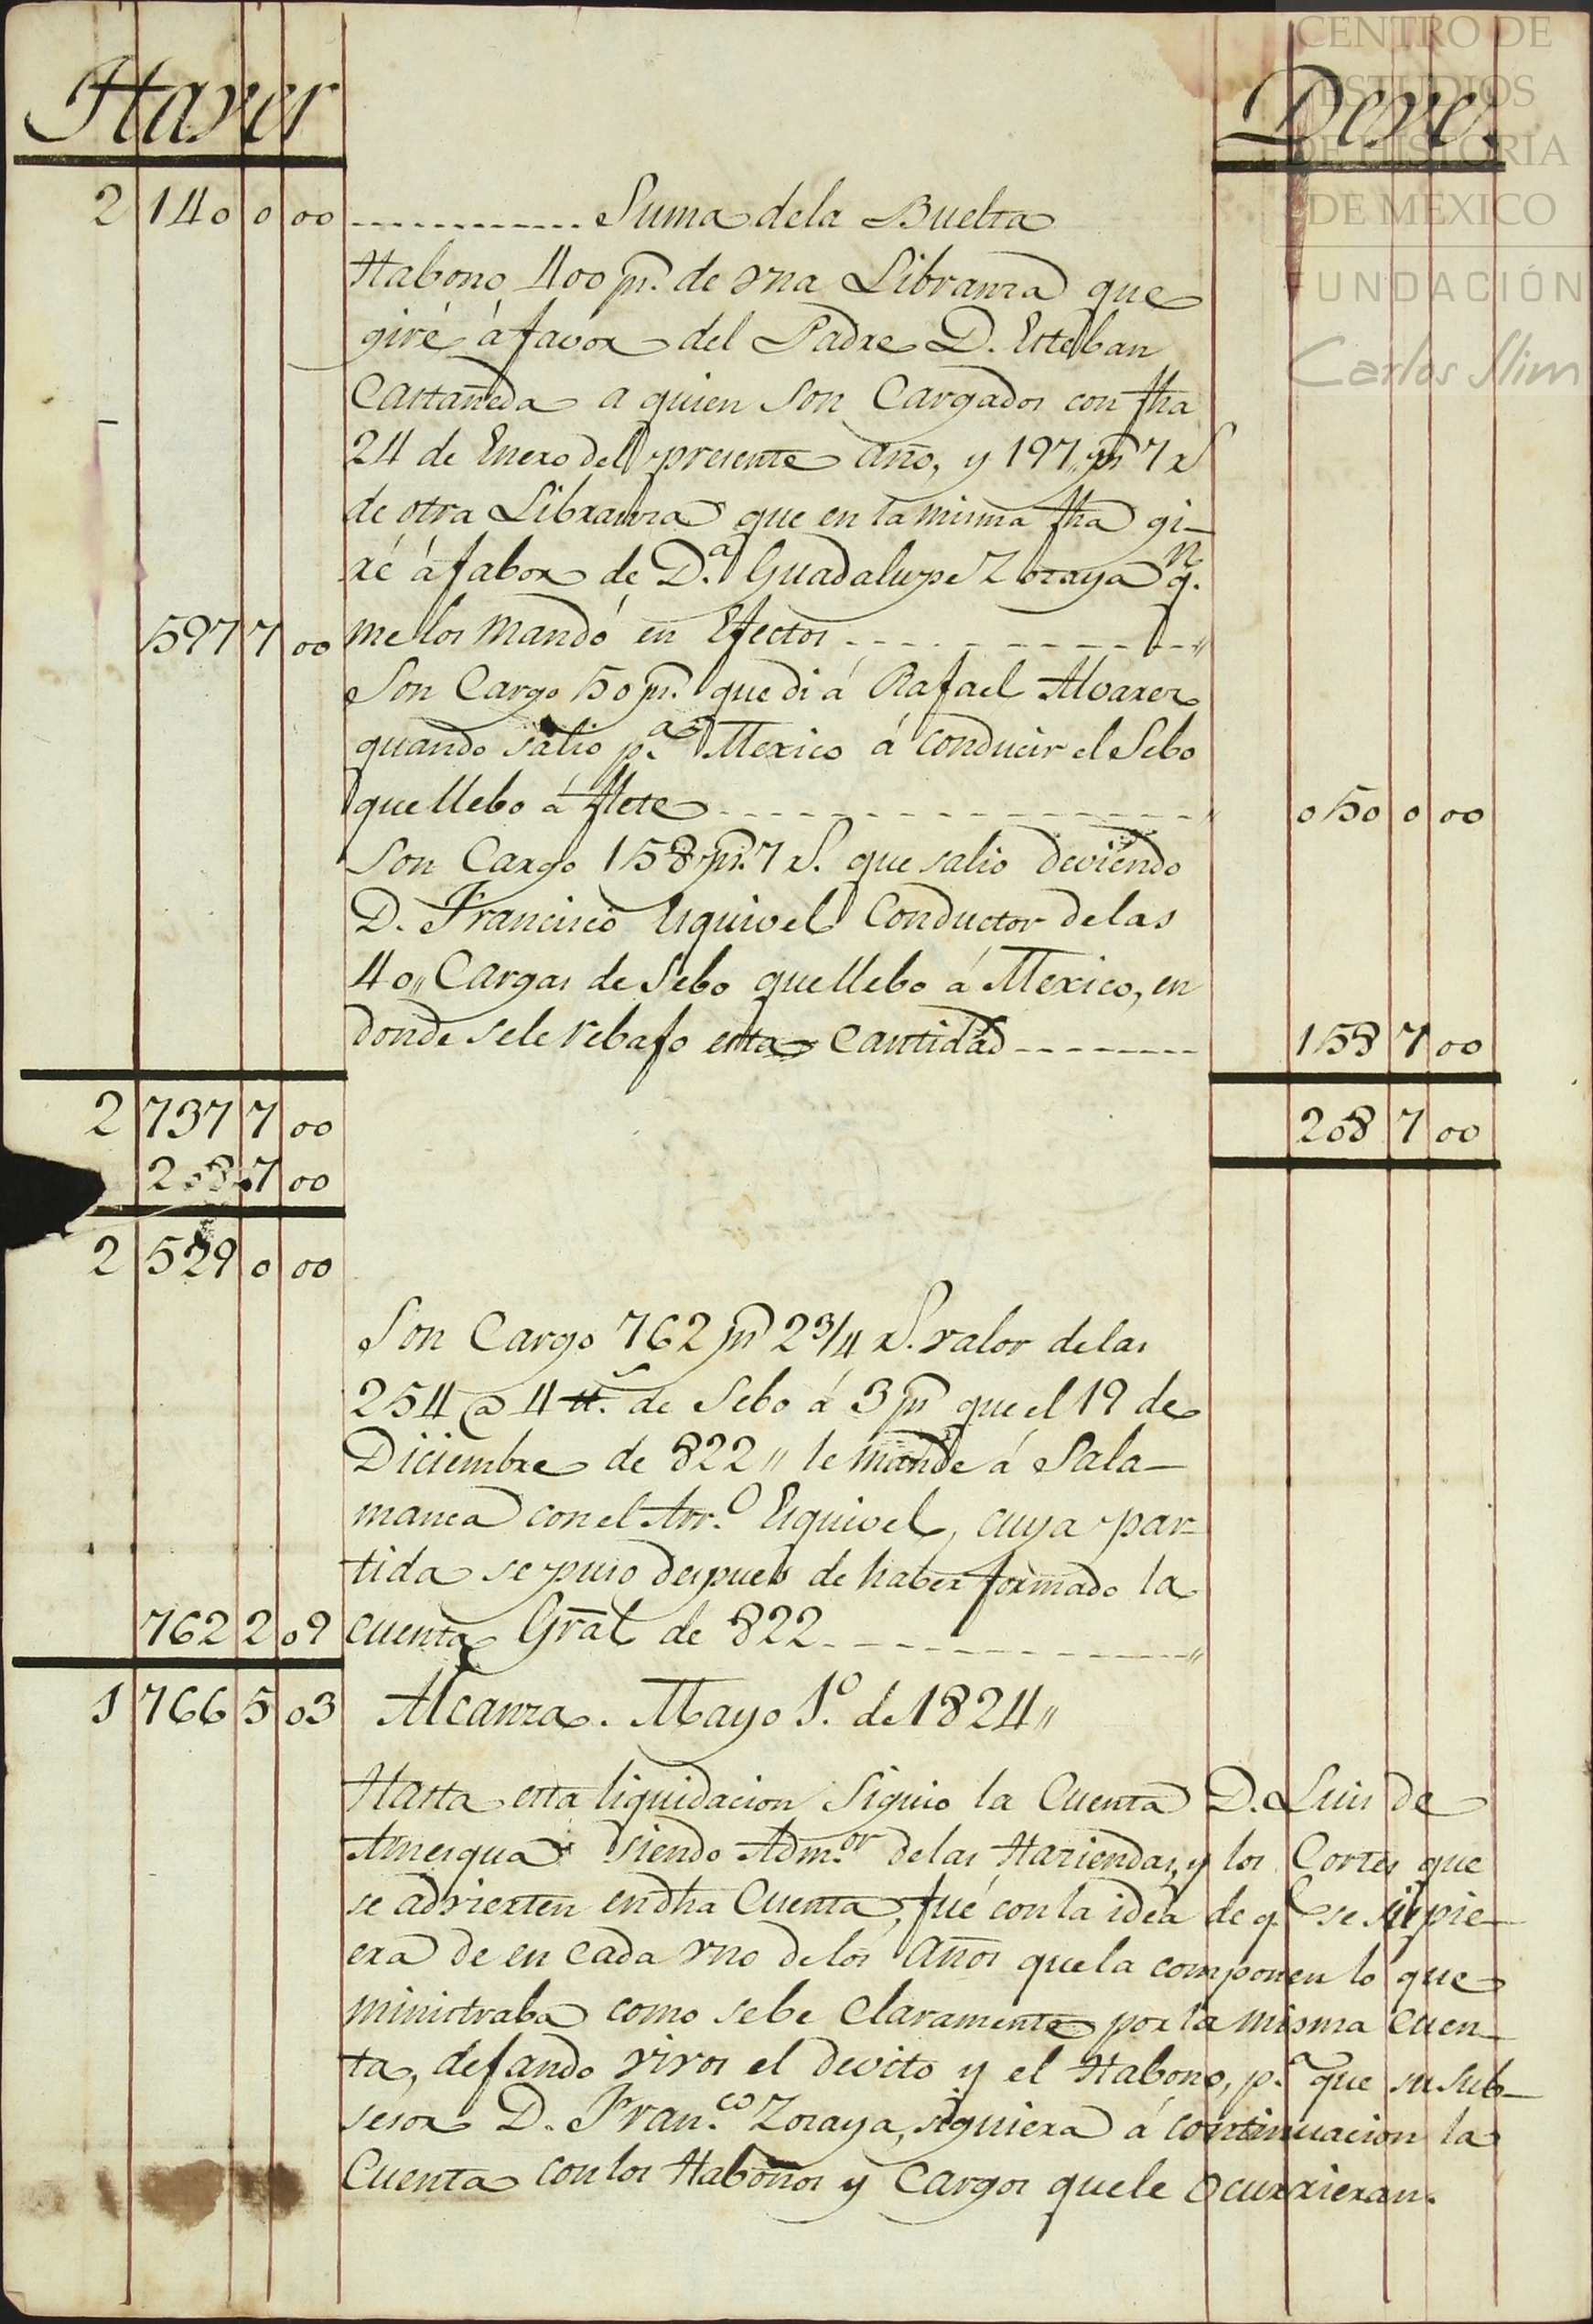 CENTRO DE
ESTUDIOS
DE HISTORIA
DE MEXICO
FUNDACIÓN
Carlos Slim
Haver Deve.
2 140 0 00 ------------ Suma dela Buelta
Habono 400 ps. de vna Libranza que
giré á favor del Padre D. Esteban
Castañeda a quien son Cargados con fha
24 de Enero del presente año, y 197 ps 7 rs
de otra Libranza que en la misma fha gi-
ré á fabor de D.a Guadalupe Zozaya q.n
597 7 00 me los mandó en Efectos ------------"
Son Cargo 50 ps. que di á Rafael Alvarez
quando salio p.a Mexico á conducir el Sebo
que llebo á flete ----------------" 050 0 00
Son Cargo 158 ps. 7 rs. que salio deviendo
D. Francisco Esquivel Conductor delas
40,, Cargas de Sebo que llebo á Mexico, en
donde sele rebajo esta Cantidad -------- 158 7 00
2 737 7 00 208 7 00
208 7 00
2 529 0 00
Son Cargo 762 ps 2 3/4 rs. valor delas
254 @ 4 tt.s de Sebo á 3 ps que el 19 de
Diciembre de 822,, le mandé á Sala-
manca con el Arr.o Esquivel, cuya par=
tida se puso despues de haber formado la
762 2 09 cuenta Gral de 822 ------------"
1 766 5 03 Alcanza. Mayo 1.o de 1824,,
Hasta esta liquidacion siguio la Cuenta D. Luis de
Amesqua siendo Adm.or delas Haziendas, y los Cortes que
se advierten en dha Cuenta, fué con la idea de q.e se supie-
era de en cada vno delos años que la componen lo que
ministraba como se be claramente por la misma cuen-
ta, dejando vivos el devito y el Habono, p.a que su sub-
sesor D. Fran.co Zozaya, siguiera á continuacion la
Cuenta con los Habonos y Cargos que le ocurrieran.